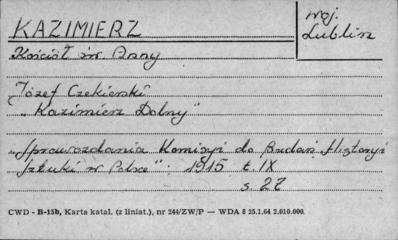 KAZIMIERZ
woj.
Lublin
Kościół św. Anny
Józef Czekierski
"Kazimierz Dolny"
"Sprawozdania Komisyi do Badań Historyi
Sztuki w Polsce" 1915 t. IX
s. 27
CWD - B-15b, Karta katal. (z liniat.), nr 244/ZW/P — WDA 8 25.1.64 2.010.000.